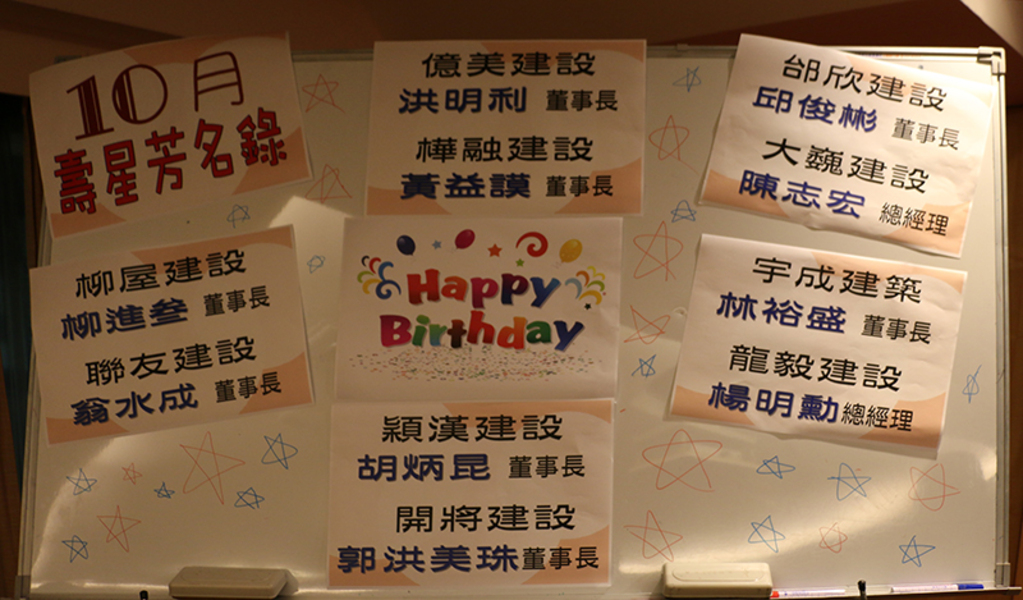 10月
壽星芳名錄
億美建設
洪明利 董事長
樺融建設
黃益謨 董事長
邰欣建設
邱俊彬 董事長
大巍建設
陳志宏 總經理
柳屋建設
柳進叁 董事長
聯友建設
翁水成 董事長
Happy
Birthday
宇成建築
林裕盛 董事長
龍毅建設
楊明勳 總經理
潁漢建設
胡炳昆 董事長
開將建設
郭洪美珠 董事長